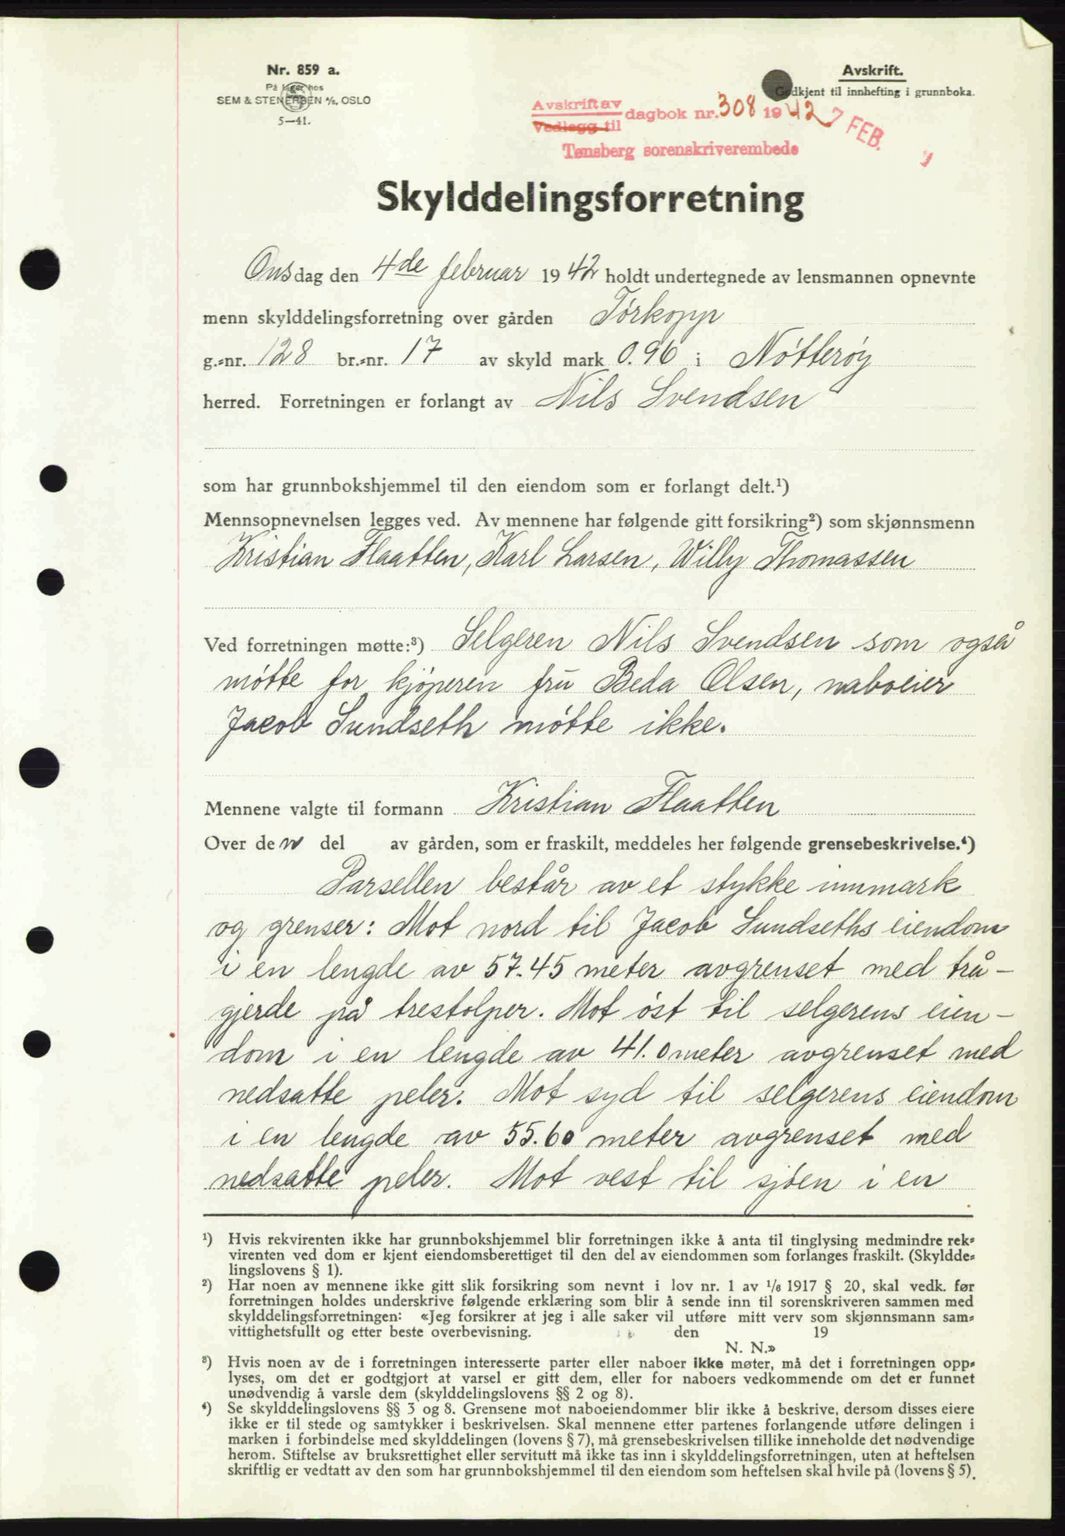 Nr. 859 a.
På lager hos
SEM & STENERSEN A/S, OSLO
5—41.
Avskrift.
Godkjent til innhefting i grunnboka.
Avskrift av
Vedlegg til dagbok nr. 308 1942 7 FEB.
Tønsberg sorenskriverembede
Skylddelingsforretning
Onsdag den 4de februar 1942 holdt undertegnede av lensmannen opnevnte
menn skylddelingsforretning over gården Torkopp
g.-nr. 128 br.-nr. 17 av skyld mark 0.96 i Nøtterøy
herred. Forretningen er forlangt av Nils Svendsen
som har grunnbokshjemmel til den eiendom som er forlangt delt.¹)
Mennsopnevnelsen legges ved. Av mennene har følgende gitt forsikring²) som skjønnsmenn
Kristian Flaatten, Karl Larsen, Willy Thomassen
Ved forretningen møtte:³) Selgeren Nils Svendsen som også
møtte for kjøperen fru Beda Olsen, naboeier
Jacob Sundseth møtte ikke.
Mennene valgte til formann Kristian Flaatten
Over den del av gården, som er fraskilt, meddeles her følgende grensebeskrivelse.⁴)
Parsellen består av et stykke innmark
og grenser: Mot nord til Jacob Sundseths eiendom
i en lengde av 57.45 meter avgrenset med trå-
gjerde på trestolper. Mot øst til selgerens eien-
dom i en lengde av 41.0 meter avgrenset med
nedsatte peler. Mot syd til selgerens eiendom
i en lengde av 55.60 meter avgrenset med
nedsatte peler. Mot vest til sjøen i en
¹) Hvis rekvirenten ikke har grunnbokshjemmel blir forretningen ikke å anta til tinglysing medmindre rek-
virenten ved dom er kjent eiendomsberettiget til den del av eiendommen som forlanges fraskilt. (Skyldde-
lingslovens § 1).
²) Har noen av mennene ikke gitt slik forsikring som nevnt i lov nr. 1 av 1/6 1917 § 20, skal vedk. før
forretningen holdes underskrive følgende erklæring som blir å sende inn til sorenskriveren sammen med
skylddelingsforretningen: «Jeg forsikrer at jeg i alle saker vil utføre mitt verv som skjønnsmann sam-
vittighetsfullt og etter beste overbevisning. den 19
N. N.»
³) Hvis noen av de i forretningen interesserte parter eller naboer ikke møter, må det i forretningen opp-
lyses, om det er godtgjort at varsel er gitt dem, eller for naboers vedkommende om det er funnet
unødvendig å varsle dem (skylddelingslovens §§ 2 og 8).
⁴) Se skylddelingslovens §§ 3 og 8. Grensene mot naboeiendommer blir ikke å beskrive, dersom disses eiere
ikke er til stede og samtykker i beskrivelsen. Skal mennene etter partenes forlangende utføre delingen i
marken i forbindelse med skylddelingen (lovens § 7), må grensebeskrivelsen tillike inneholde det nødvendige
herom. Stiftelse av bruksrettighet eller servitutt må ikke tas inn i skylddelingsforretningen, uten at heftelsen
skriftlig er vedtatt av den som har grunnbokshjemmel til den eiendom som heftelsen skal hvile på (lovens § 5).